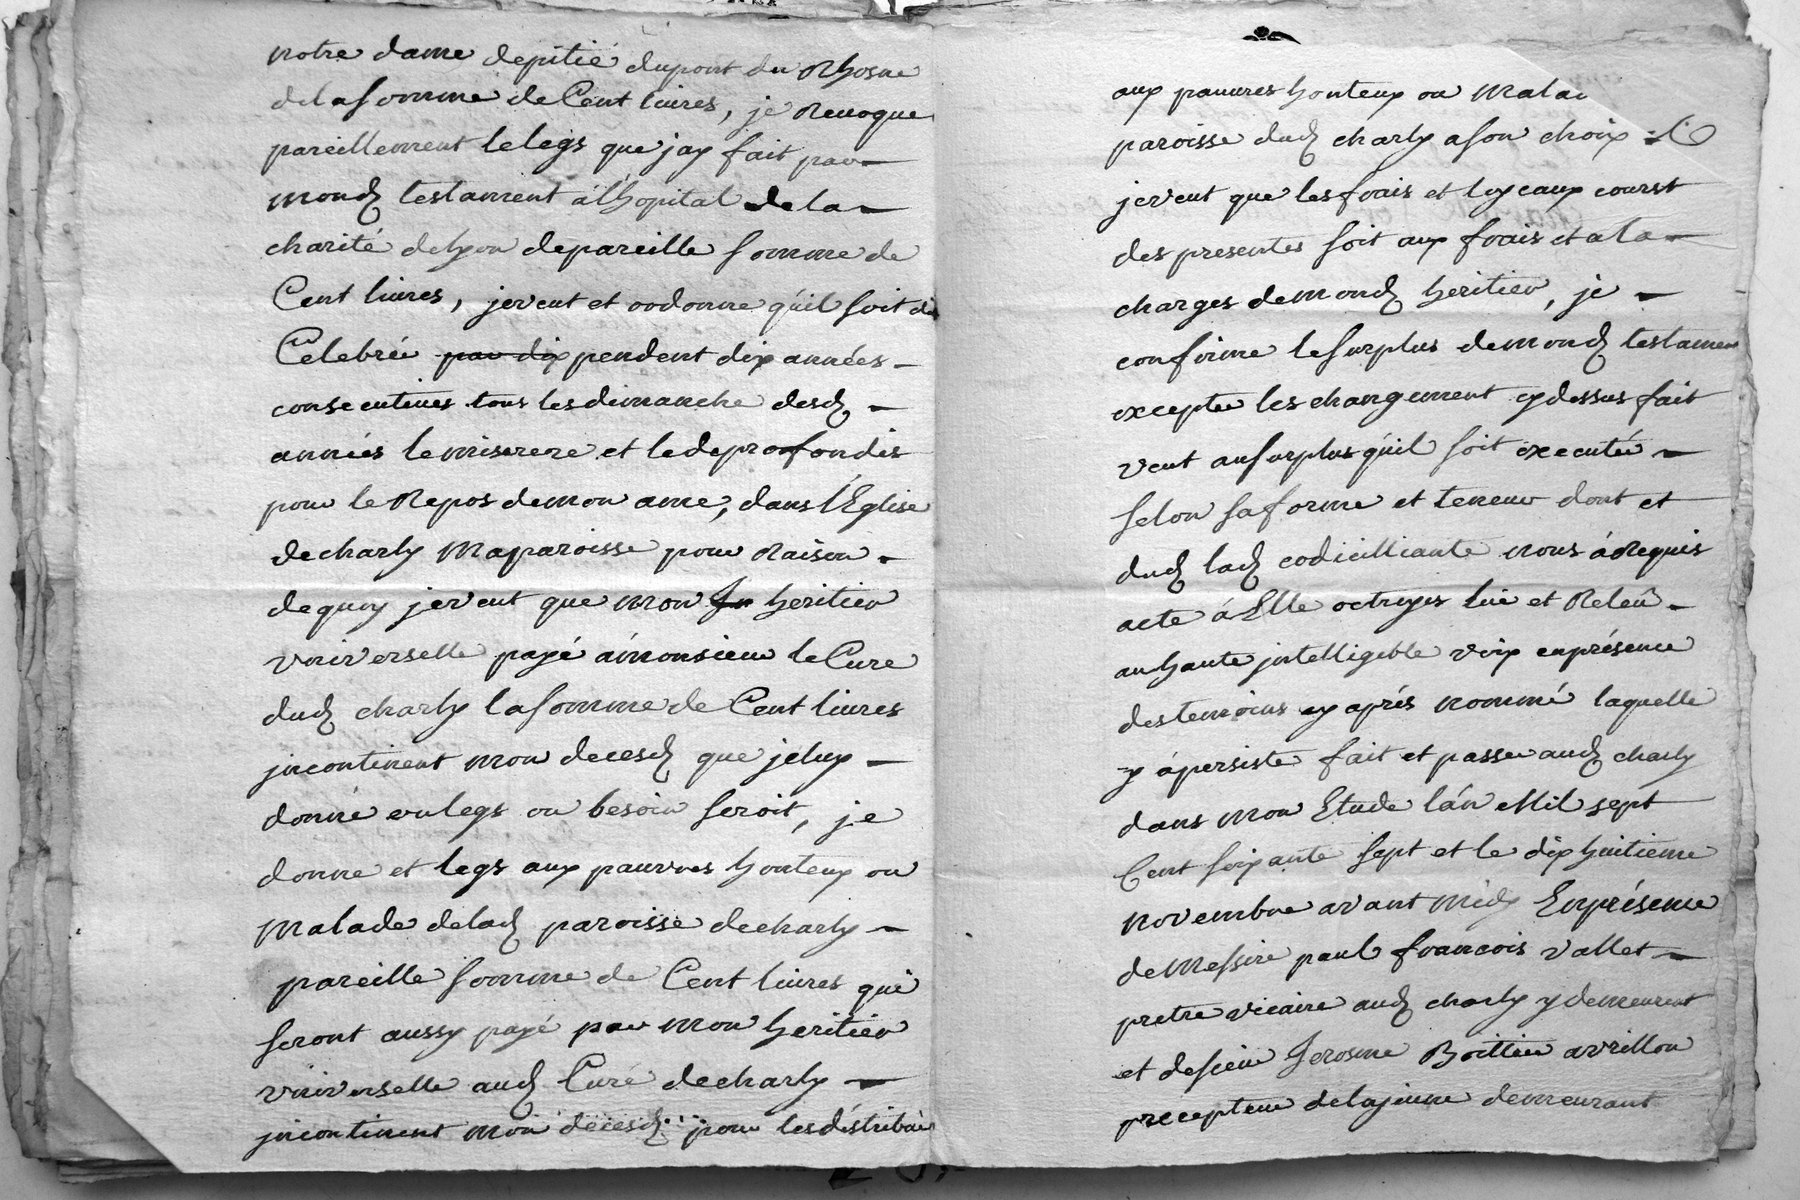 notre dame depitié dupont du Rhosne
delasomme de Cent liures, je Reuoque
pareillement lelegs que jay fait par
mond testament àlhopital dela
charité delyon depareille somme de
Cent liures, jeveut et ordonne quil soit dit
Celebreé par dix pendent dix années
consecutives tous lesdimanche desd
années lemiserere et ledeprofondis
pour le Repos demon ame, dans l'Eglise
decharly maparoisse pour Raison
dequoy jeveut que mon heritier
vniverselle payé amonsieur leCure
dud charly lasomme de Cent liures
jncontinent mon decesd que jeluy
donne enlegs ou besoin seroit, je
donne et legs aux pauvres honteux ou
malade delad paroisse decharly
pareille somme de Cent liures qui
seront aussy payé par mon heritier
vniverselle aud Curé decharly
jncontinent mon decesd pour lesdéstribüer
aux pauures honteux ou malad
paroisse dud charly ason choix
jeveut que lesfrais et loyeaux courst
des presentes soit aux frais et ala
charges demond heritier, je
confirme lesurplus demond testament
exceptee les changement cydessus fait
veut ausurplus quil soit executée
selon saforme et teneur dont et
dud lad codicilliante nous àRequis
acte àElle octroyes lüe et Releüe
auhaute jntelligeble voix enprésence
destemoins cy aprés nommé laquelle
y àpersiste fait et passee aud charly
dans mon Etude lán Mil sept
Cent soixante sept et le dix huitieme
novembre avant midy Enprésence
deMessire paul francois vallet
pretre vicaire aud charly ydemeurent
et desieur Jerosme Boittier avrillon
precepteur delajeune demeurant